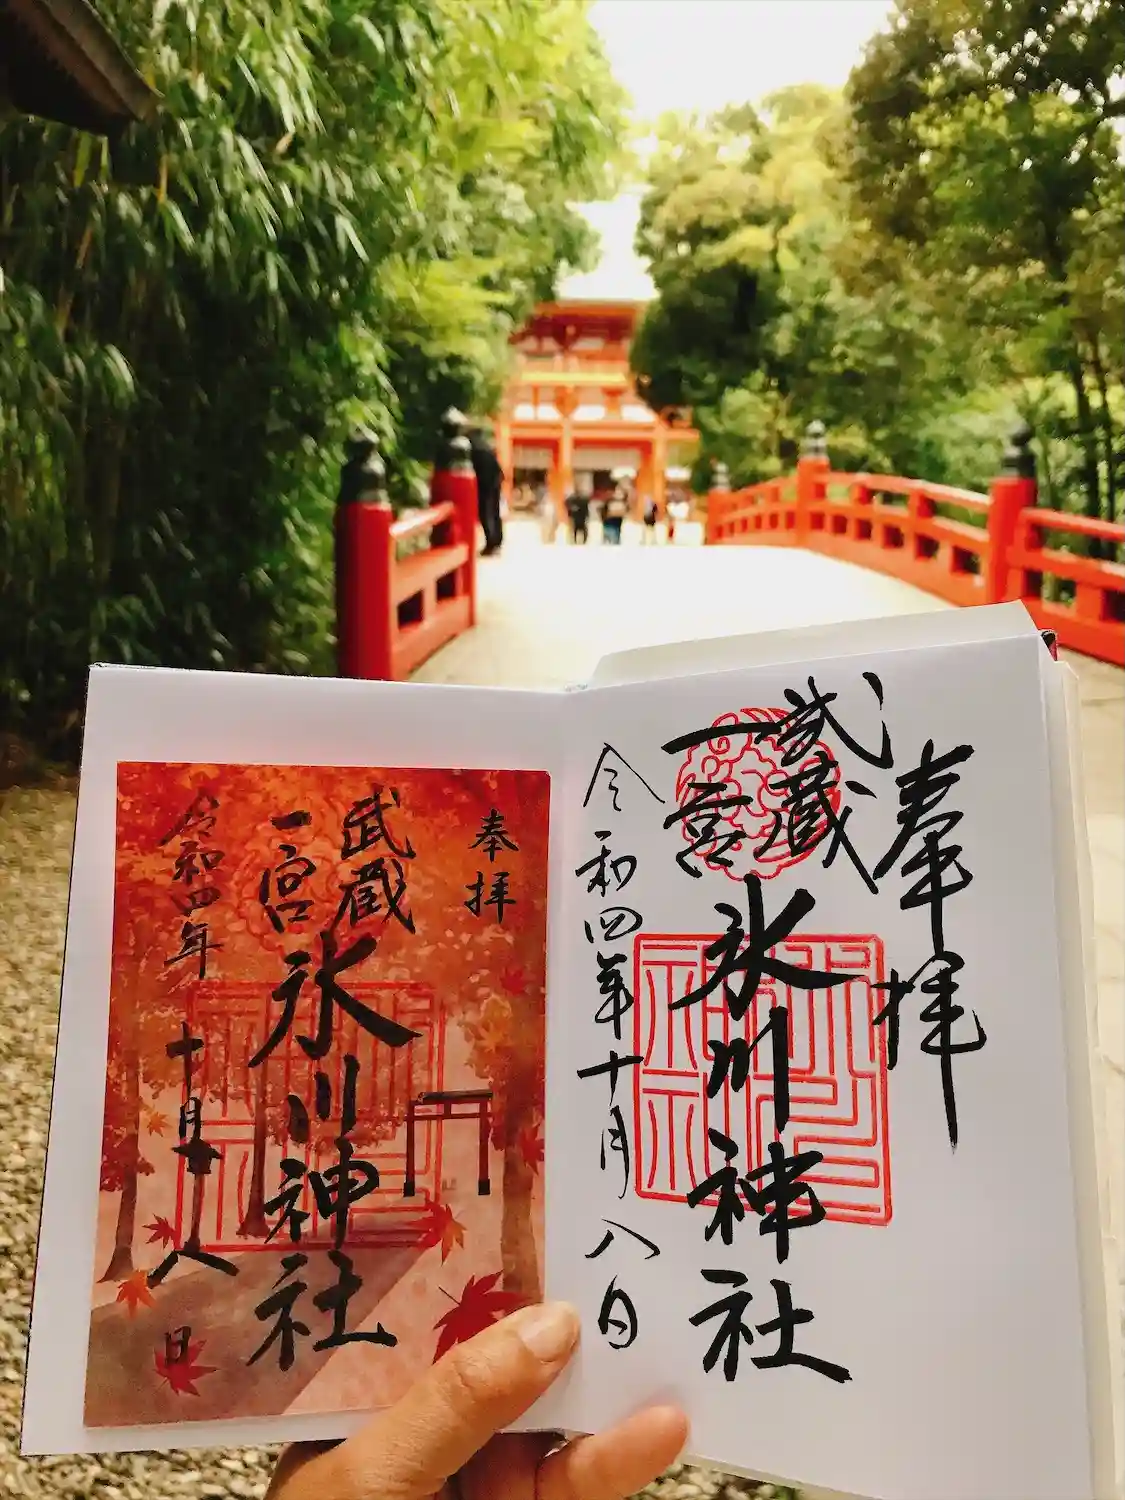 奉拝
武蔵
一宮
氷川神社
令和四年十月八日
奉拝
武蔵
一宮
氷川神社
令和四年 十月八日